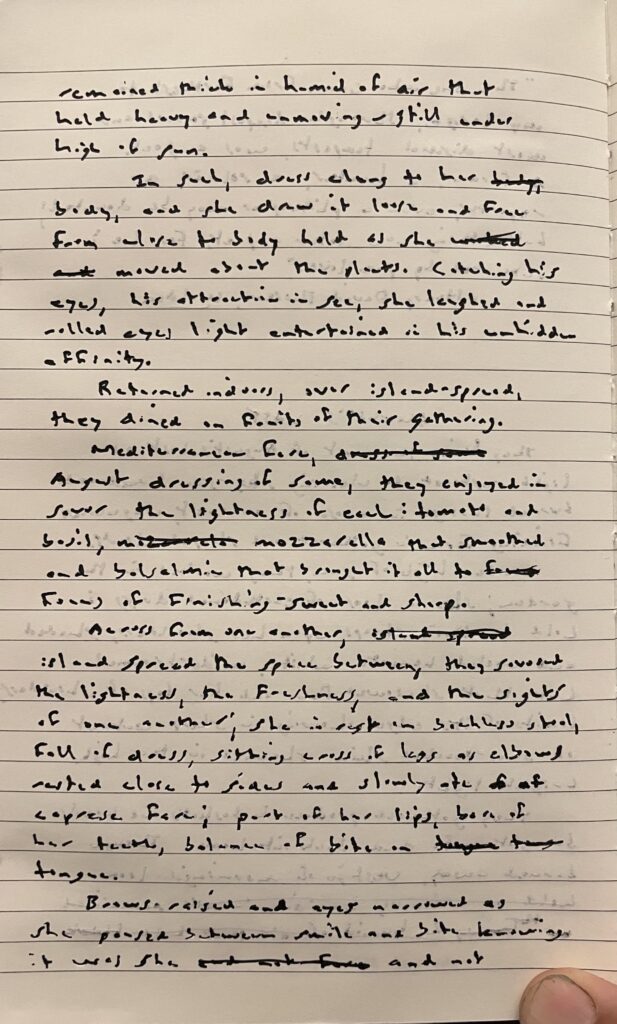 remained thick in humid of air that
held heavy and unmoving - still under
high of sun.
In such, dress clung to her body,
body, and she drew it loose and free
from close to body hold as she worked
and moved about the plants. Catching his
eyes, his attraction in see, she laughed and
rolled eyes light entertained in his unhidden
affinity.
Returned indoors, over island-spread,
they dined on fruits of their gathering.
Mediterranean fare,
August dressing of some, they enjoyed in
savor the lightness of each: tomato and
basil, mozzarella mozzarella that smoothed
and balsalmic that brought it all to
focus of finishing - sweet and sharp.
Across from one another, island spread
island spread the space between, they savored
the lightness, the freshness, and the sights
of one another; she in rest on backless stool,
fall of dress, sitting cross of legs as elbows
rested close to sides and slowly ate of
caprese fare; part of her lips, bare of
her teeth, balance of bite on
tongue.
Brows raised and eyes narrowed as
she paused between smile and bite knowing
it was she and not